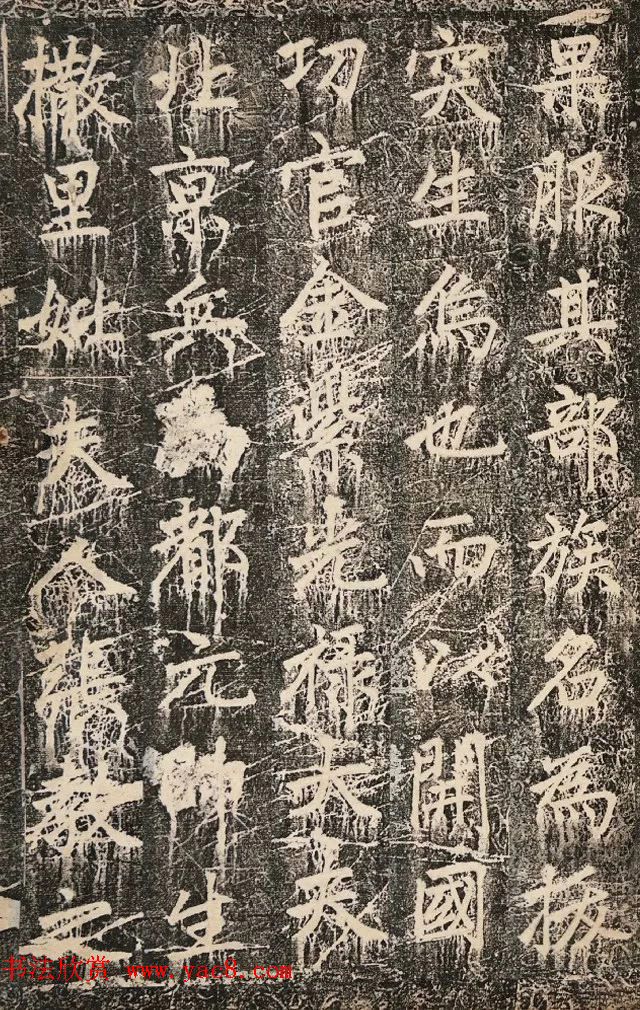 服其部族名為拔
突生烏也而以開國
功官金紫光祿大夫
北京兵馬都元帥生
撒里夫人教之
书法欣赏 www.yac8.com